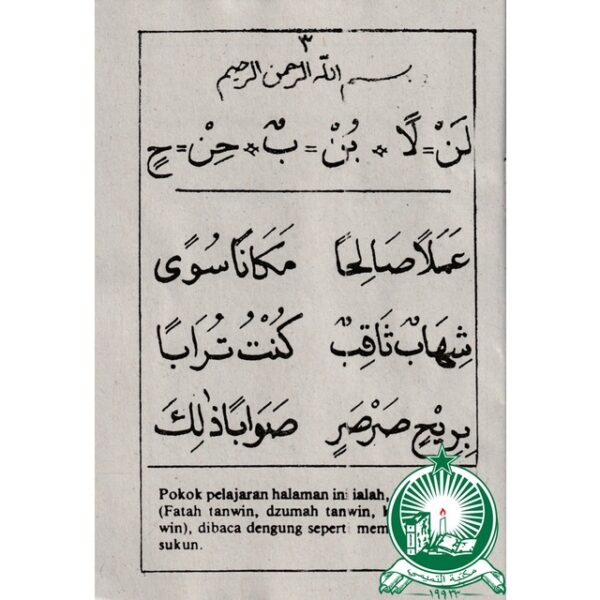 ٣
بسم الله الرحمن الرحيم
لَنْ=لًا * بُنْ=بٌ * حِنْ=حٍ
عَمَلًا صَالِحًا مَكَانًا سُوًى
شِهَابٌ ثَاقِبٌ كُنْتُ تُرَابًا
بِرِيْحٍ صَرْصَرٍ صَوَابًا ذٰلِكَ
Pokok pelajaran halaman ini ialah,
(Fatah tanwin, dzumah tanwin,
win), dibaca dengung seperti mem
sukun.
١٩٩٣